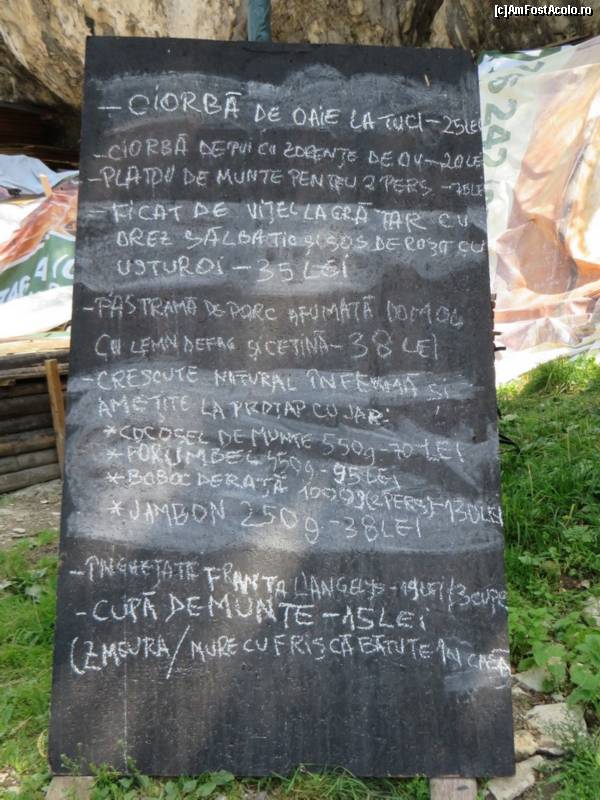 (c)AmFostAcolo.ro
- CIORBĂ DE OAIE LA TUCI - 25LEI
- CIORBĂ DE PUI CU ZDRENȚE DE OU - 20LEI
- PLATOU DE MUNTE PENTRU 2 PERS -
- FICAT DE VIȚEL LA GRĂTAR CU
OREZ SĂLBATIC ȘI SOS DE ROȘII CU
USTUROI - 35 LEI
- PASTRAMĂ DE PORC AFUMATĂ DOMOL
CU LEMN DE FAG ȘI CETINĂ - 38 LEI
- CRESCUTE NATURAL ÎN FERMĂ ȘI
AMEȚITE LA PROȚAP CU JAR:
* COCOȘEL DE MUNTE 550g - 70 LEI
* PORUMBEL 450g - 95LEI
* BOBOC DE RAȚĂ 1000g (2PERS) - 130LEI
* JAMBON 250g - 38LEI
- ÎNGHEȚATĂ FRANTA L'ANGELYS - 19LEI/3CUPE
- CUPĂ DE MUNTE - 15LEI
(ZMEURA/MURE CU FRIȘCĂ BĂTUTE ÎN CASĂ